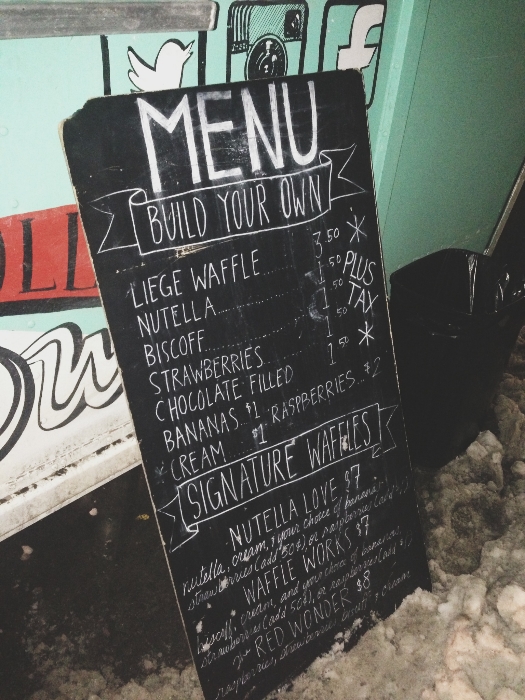 MENU
BUILD YOUR OWN
LIEGE WAFFLE 3.50 *
NUTELLA 1.50 PLUS
BISCOFF 1.50 TAX
STRAWBERRIES 1.50
CHOCOLATE FILLED 1.50 *
BANANAS $1 RASPBERRIES $2
CREAM $1
SIGNATURE WAFFLES
NUTELLA LOVE $7
nutella, cream, & your choice of banana
strawberries (add 50¢), or raspberries (add
WAFFLE WORKS $7
biscoff, cream, and your choice of bananas,
strawberries (add 50¢), or raspberries (add
RED WONDER $8
raspberries, strawberries, biscoff, cream